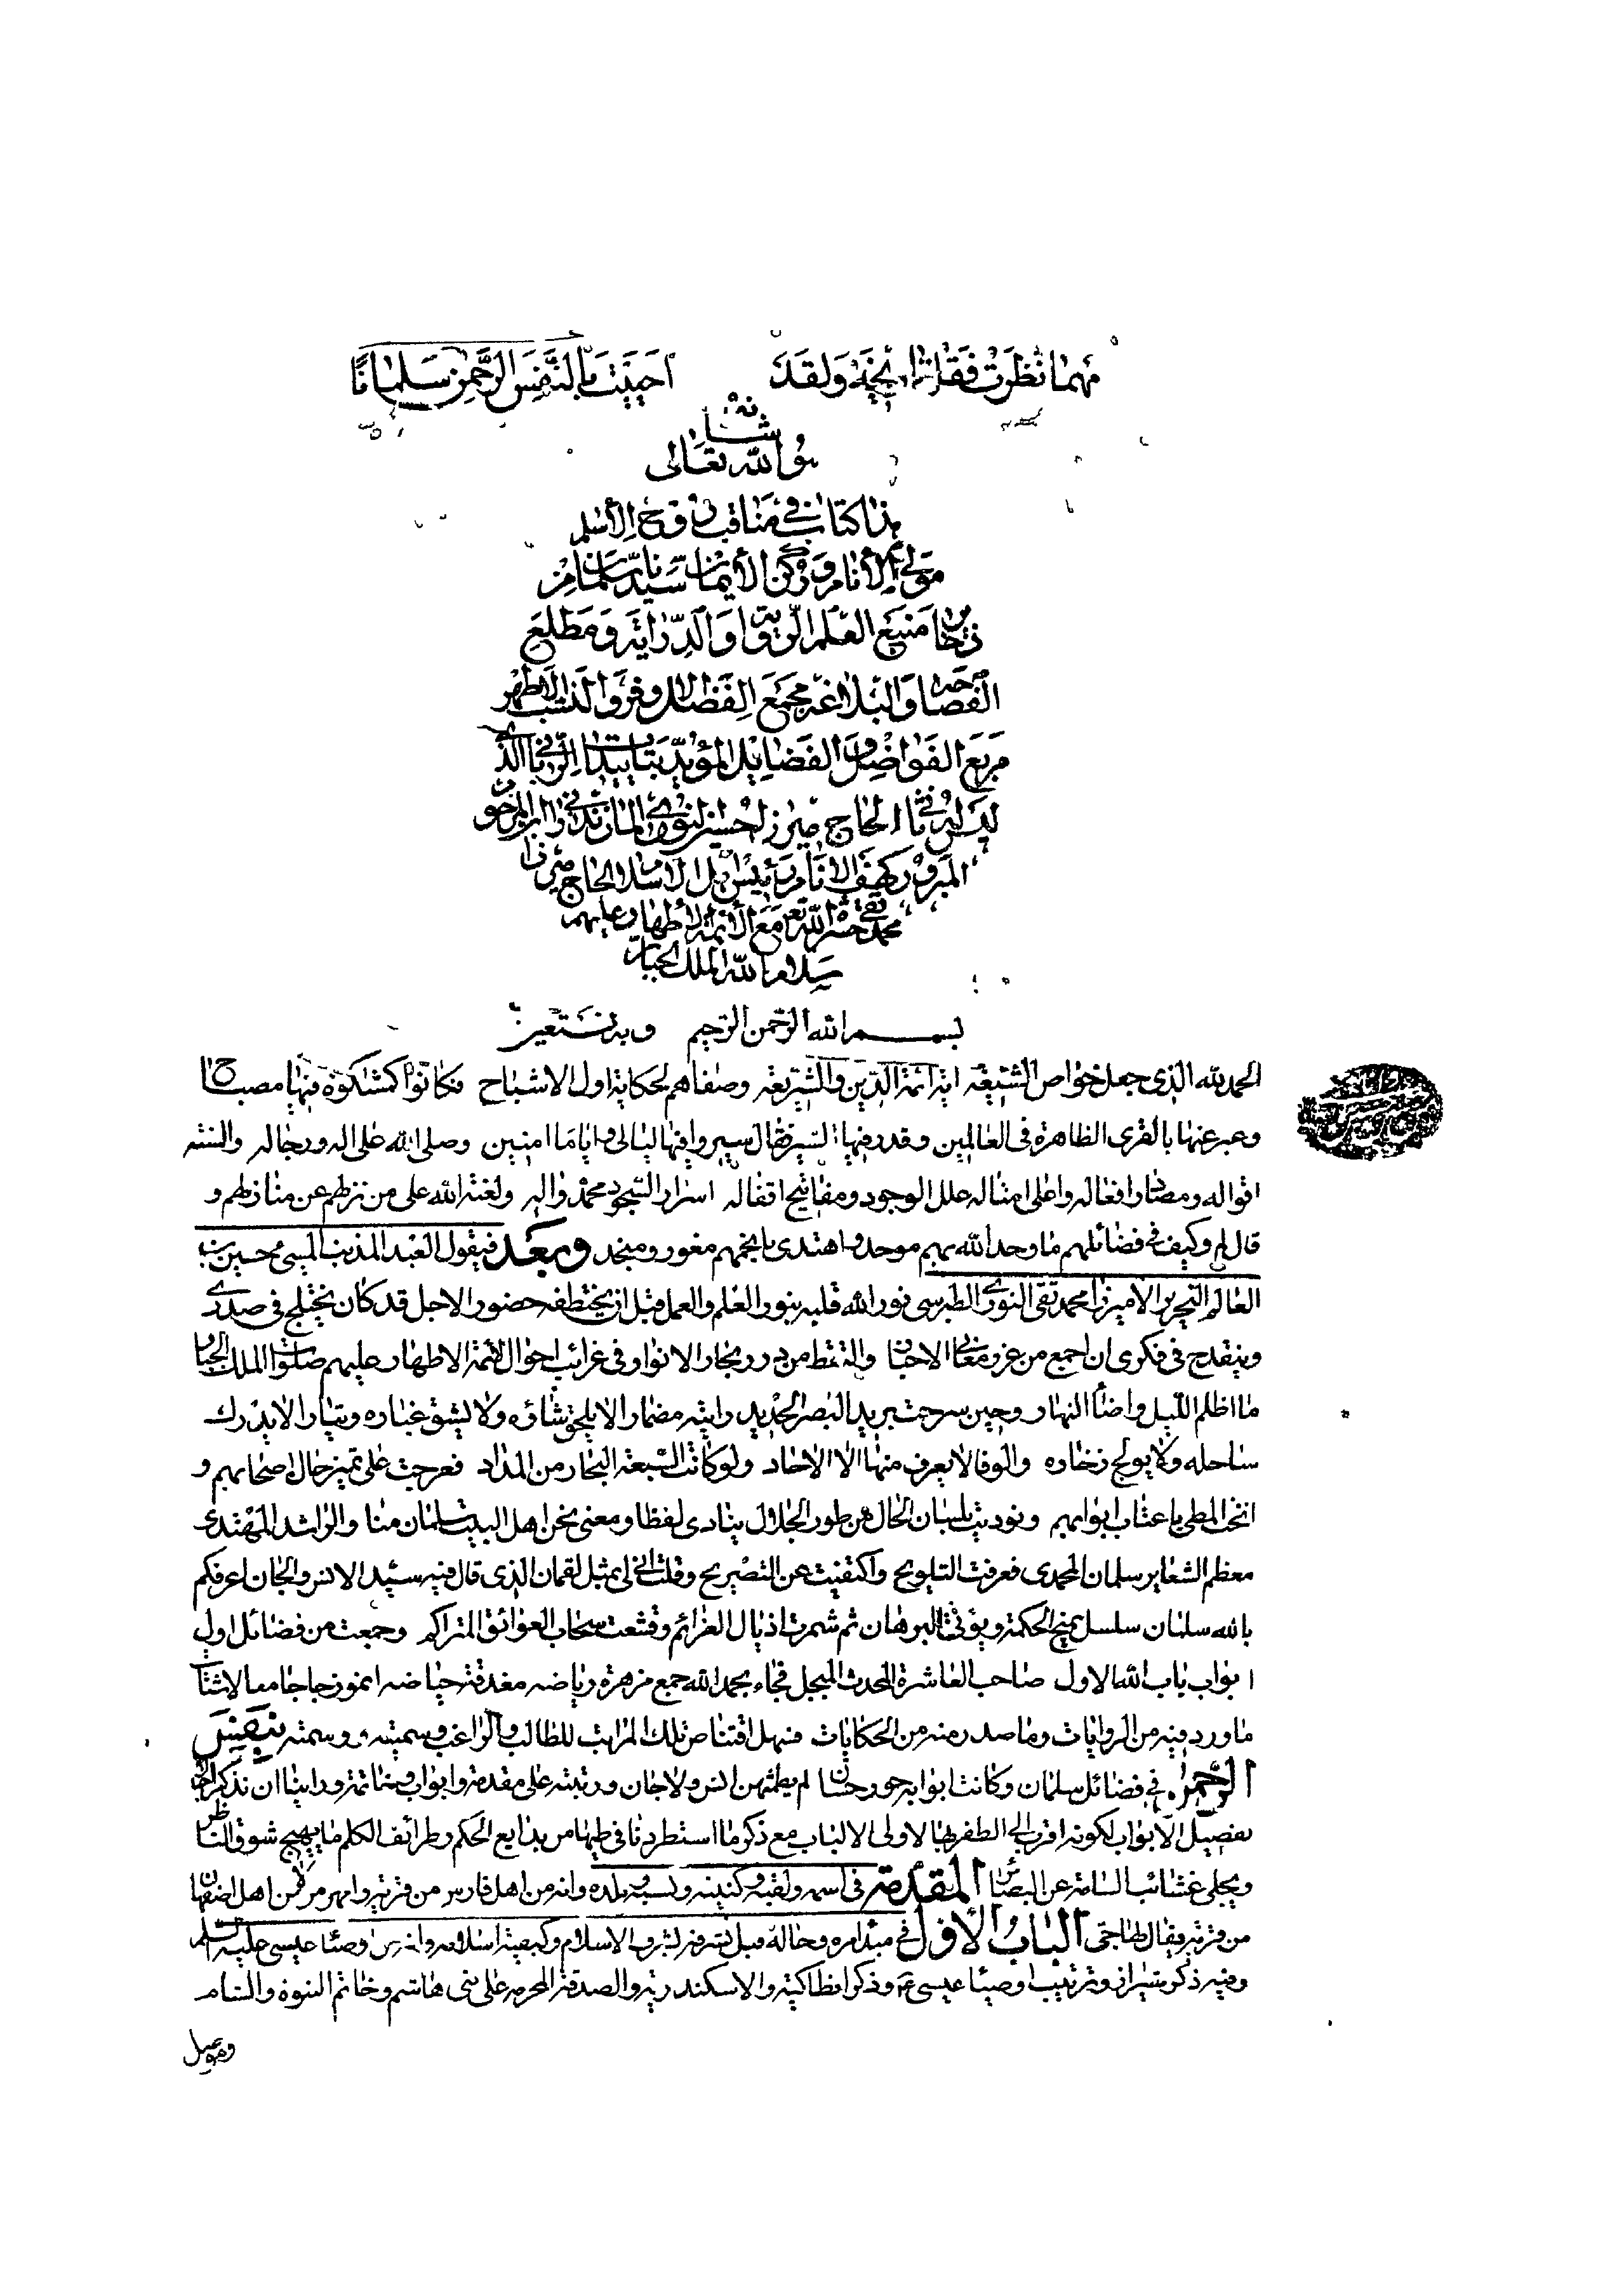 مهما نظرت فقلت نخبة ولقد أحييت بالنفس الرحمن سلمانا
هو الله تعالى شانه
هذا كتاب في مناقب روح الاسلام
مولى الأنام وركن الأيمان سيدنا سلمان من
منبع العلم الرواية والدراية ومطلع
الفصاحة والبلاغة مجمع الفضائل وفر والنسب الاطهر
مربع الفواضل والفضايل المؤيد بتاييدات الرباني الذي
ليس له ثاني الحاج ميرزا حسين النوري المازندراني ابن المرحوم
المبرور كهف الانام رئيس الاسلام الحاج ميرزا
محمد تقي حشره الله مع الأئمة الأطهار عليهم
سلام الله الملك الجبار
بسم الله الرحمن الرحيم وبه نستعين
الحمد لله الذي جعل خواص الشيعة اية ائمة الدين والشريعة وصفاهم لحكاية اول الاشباح فكانوا كمشكوة فيها مصباح
وعبر عنها بالقرى الظاهرة في العالمين وقدر فيها السير فقال سيروا فيها ليالي واياما امنين وصلى الله على اله ورجاله والسنة
اقواله ومصادر افعاله واعلى امثاله علل الوجود ومفاتيح اقفاله اسرار السجود محمد واله ولعنة الله على من نزلهم عن منازلهم و
قال لم وكيف في فضائلهم ما وحد الله بهم موحد واهتدى بانجمهم مغور ومنجد وبعد فيقول العبد المذنب المسيء حسين بن
العالم النحرير الاميرزا محمد تقي النوري الطبرسي نور الله قلبه بنور العلم والعمل قبل ان يختطفه حضور الاجل قد كان يختلج في صدري
وينقدح في فكري ان اجمع من غرر معاني الاخبار والتقط من درر بحار الانوار في غرائب احوال الائمة الاطهار عليهم صلوات الملك الجبار
ما اظلم الليل واضاء النهار وحين سرحت بريد البصر الحديد رايته مضمارا لا يلحق شاؤه ولا يشق غباره وتيارا لا يدرك
ساحله ولا يولج زخاره والوفا لا يعرف منها الا الاحاد ولو كانت السبعة البحار من المداد فعرجت على تميز حال اصحابهم و
انخت المطي باعتاب ابوابهم ونوديت بلسان الحال من طور الجلال ينادي لفظا ومعنى نحن اهل البيت سلمان منا والراشد المهتدي
معظم الشعاير سلمان المحمدي فعرفت التلويح واكتفيت عن التصريح وقلت انى لي بمثل لقمان الذي قال فيه سيد الانس والجان اعرفكم
بالله سلمان سلسل يمنح الحكمة ويؤتي البرهان ثم شمرت اذيال العزائم وقشعت سحاب العوائق المتراكم وجمعت من فضائل اول
ابواب باب الله الاول صاحب العاشرة المحدث المبجل فجاء بحمد الله جمع مزهرة رياضه مغدقة حياضه انموزجا جامعا لاشتات
ما ورد فيه من الروايات وما صدر منه من الحكايات فسهل اقتناص تلك المراتب للطالب والراغب وسميته ووسمته بنفس
الرحمن في فضائل سلمان وكانت ابوابه حور حسان لم يطمثهن انس ولا جان ورتبته على مقدمة وابواب وخاتمة وراينا ان نذكر اجمال
تفصيل الابواب لكونه اقرب الى الظفر بها لاولى الالباب مع ذكر ما استطردنا في طيها من بدايع الحكم وطرائف الكلم ما يهيج شوق الناظر
ويجلي غشائب السامة عن البصائر المقدمة في اسمه ولقبه وكنيته ونسبه وبلده وانه من اهل فارس من قرية رامهرمز او من اهل اصفهان
من قرية يقال لها جي الباب الأول في مبدا امره وحاله قبل تشرفه بشرف الاسلام وكيفية اسلامه وانه من اوصياء عيسى عليه السلم
وفيه ذكر شيراز وترتيب اوصياء عيسى ع وذكر انطاكية والاسكندرية والصدقة المحرمة على بني هاشم وخاتم النبوة والشام
وموصل